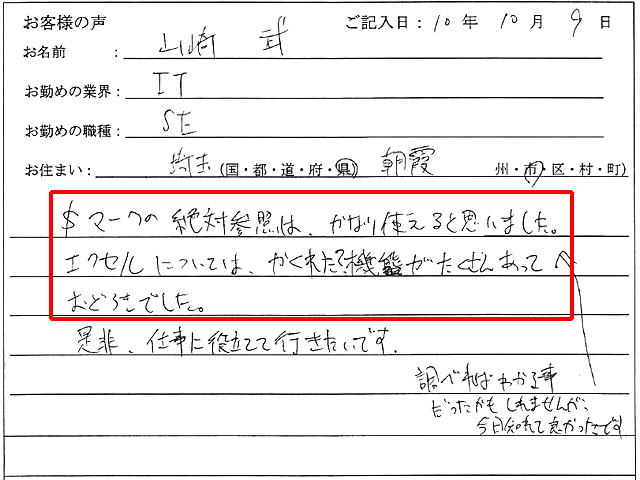 お客様の声 ご記入日：10年 10月 9日
お名前 ： 山崎 武
お勤めの業界： IT
お勤めの職種： SE
お住まい： 埼玉 (国・都・道・府・県) 朝霞 州・市・区・村・町)
$マークの絶対参照は、かなり使えると思いました。
エクセルについては、かくれた機能がたくさんあって
おどろきでした。
是非、仕事に役立てて行きたいです。
調べればわかる事
だったかもしれませんが、
今日知れて良かったです